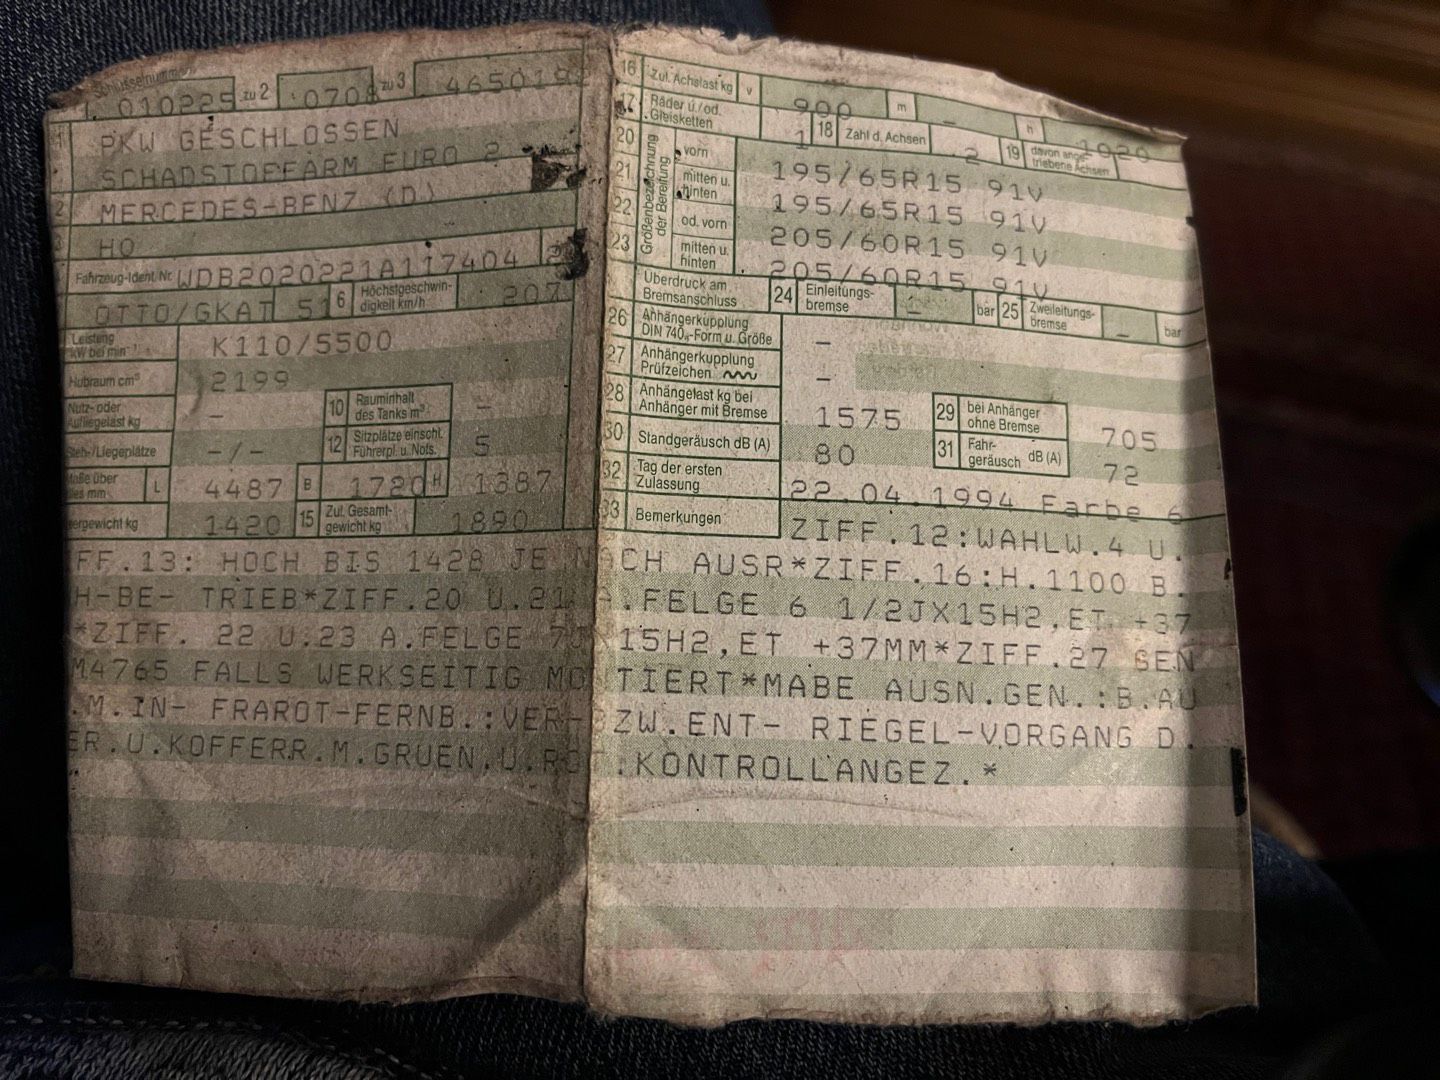 Schlüsselnummer
010225 zu 2 0708 zu 3 4650192
1 PKW GESCHLOSSEN
SCHADSTOFFARM EURO 2
2 MERCEDES-BENZ (D)
3 HO
Fahrzeug-Ident.Nr. WDB2020221A117404 2
OTTO/GKAT 51 6 Höchstgeschwindigkeit km/h 207
Leistung kW bei min⁻¹ K110/5500
Hubraum cm³ 2199
Nutz- oder Aufliegelast kg - 10 Rauminhalt des Tanks m³ -
Steh-/Liegeplätze -/- 12 Sitzplätze einschl. Führerpl. u. Nots. 5
Maße über alles mm L 4487 B 1720 H 1387
ergewicht kg 1420 15 Zul. Gesamtgewicht kg 1890
16 Zul. Achslast kg v 900 m - h 1020
17 Räder u./od. Gleisketten 1 18 Zahl d. Achsen 2 19 davon angetriebene Achsen
Größenbezeichnung der Bereifung
20 vorn 195/65R15 91V
21 mitten u. hinten 195/65R15 91V
22 od. vorn 205/60R15 91V
23 mitten u. hinten 205/60R15 91V
Überdruck am Bremsanschluss 24 Einleitungsbremse - bar 25 Zweileitungsbremse - bar
26 Anhängerkupplung DIN 740.-Form u. Größe -
27 Anhängerkupplung Prüfzeichen -
28 Anhängelast kg bei Anhänger mit Bremse 1575 29 bei Anhänger ohne Bremse 705
30 Standgeräusch dB (A) 80 31 Fahrgeräusch dB (A) 72
32 Tag der ersten Zulassung 22.04.1994 Farbe 6
33 Bemerkungen ZIFF.12:WAHLW.4 U.
FF.13: HOCH BIS 1428 JE NACH AUSR*ZIFF.16:H.1100 B.
H-BE- TRIEB*ZIFF.20 U.21 A.FELGE 6 1/2JX15H2,ET +37
*ZIFF. 22 U.23 A.FELGE 7JX15H2,ET +37MM*ZIFF.27 GEN
M4765 FALLS WERKSEITIG MONTIERT*MABE AUSN.GEN.:B.AU
.M.IN- FRAROT-FERNB.:VER-BZW.ENT- RIEGEL-VORGANG D.
ER.U.KOFFERR.M.GRUEN.U.ROT.KONTROLLANGEZ.*